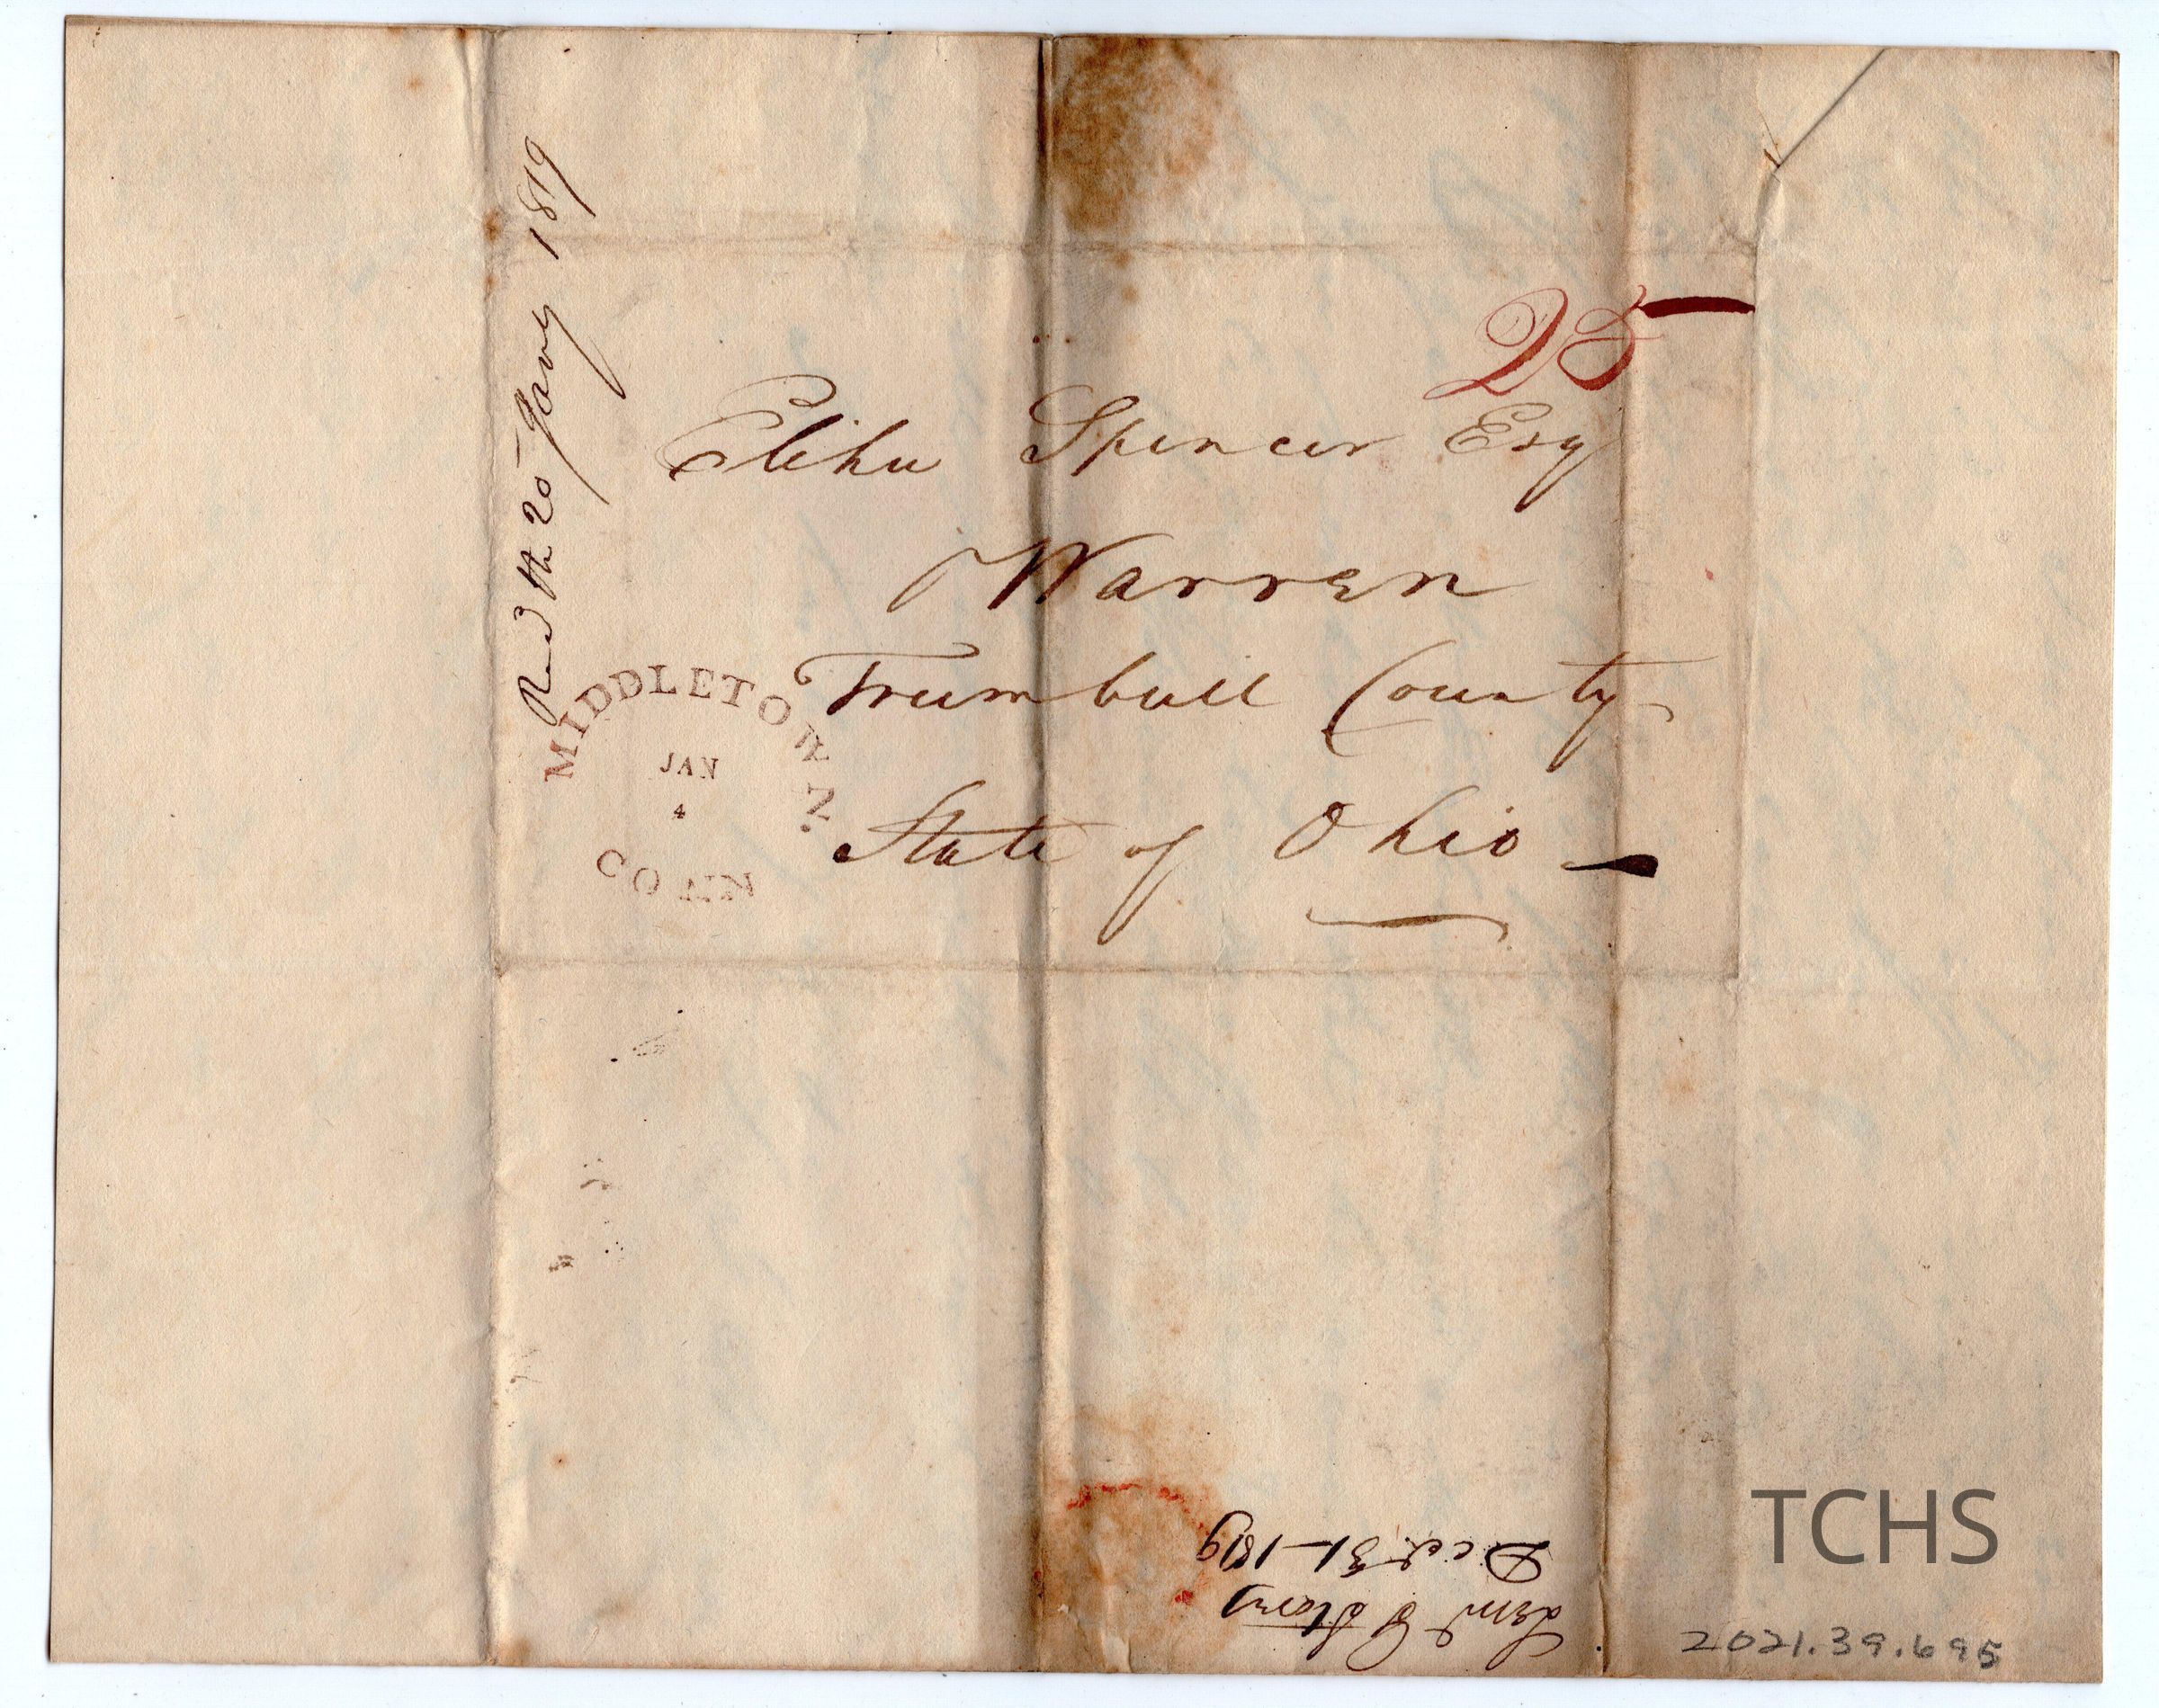 Recd the 20 Jany 1819
25
Elihu Spencer Esq
Warren
Trumbull County
State of Ohio
MIDDLETOWN.
JAN
4
CONN
Saml
Decr 31-1819
TCHS
2021.39.695